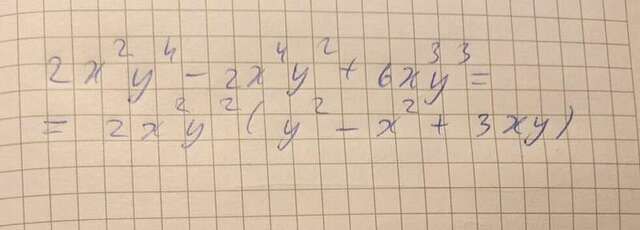 2x²y⁴ - 2x⁴y² + 6x³y³ =
= 2x²y² (y² - x² + 3xy)